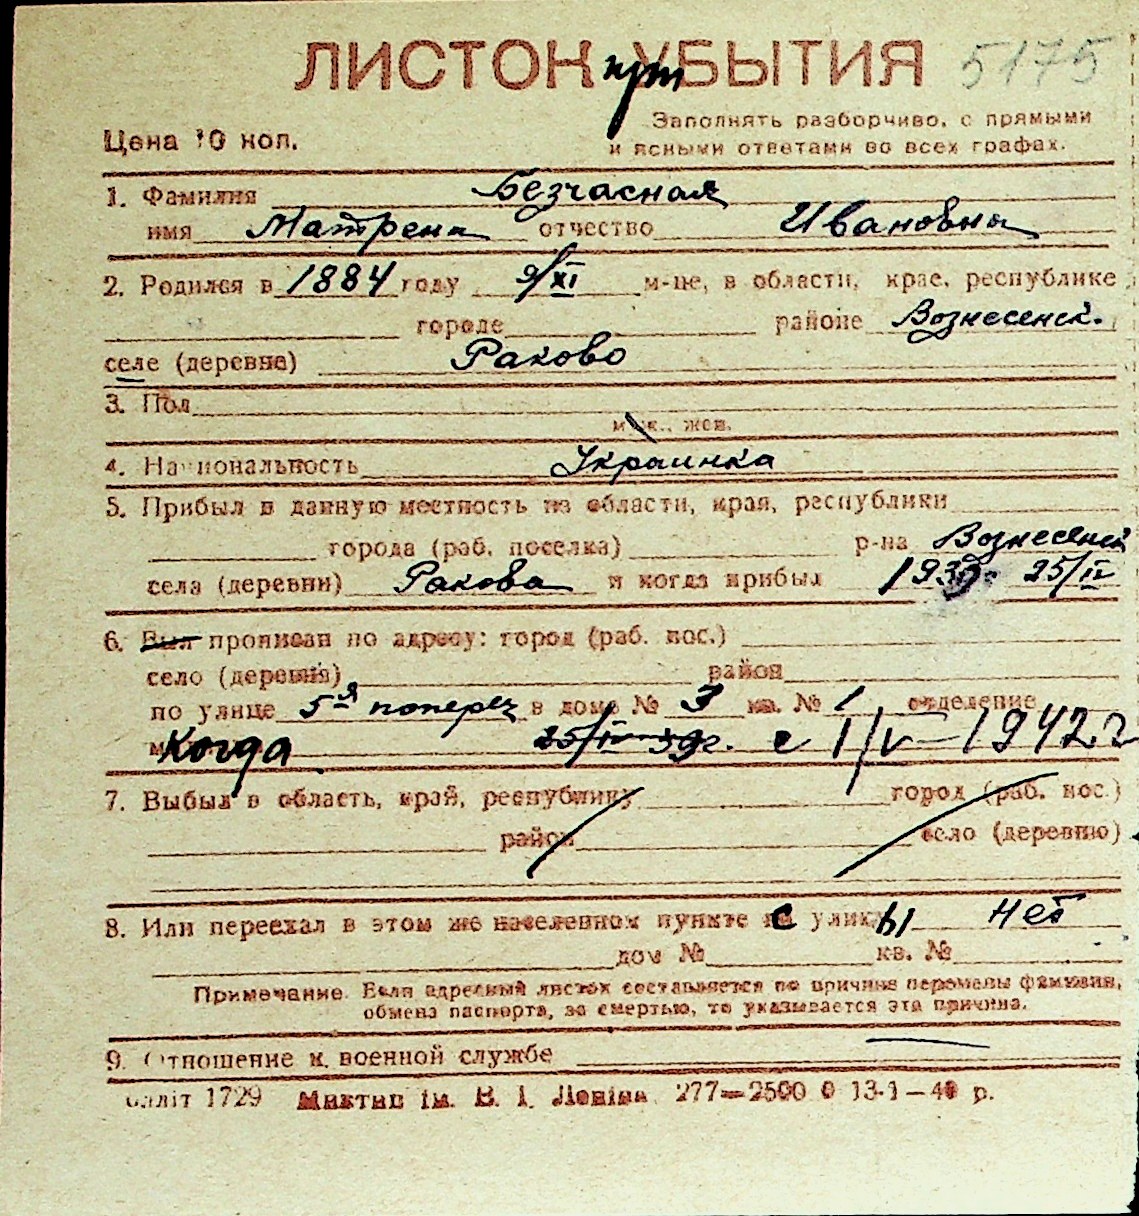 ЛИСТОК УБЫТИЯ 5175
Цена 10 коп.
Заполнять разборчиво, с прямыми
и ясными ответами во всех графах.
1. Фамилия Безчасная
имя Матрена отчество Ивановна
2. Родился в 1884 году 9/XI м-це, в области, крае, республике
городе районе Вознесенск.
селе (деревне) Раково
3. Пол
муж., жен.
4. Национальность Украинка
5. Прибыл в данную местность из области, края, республики
города (раб. поселка) р-на Вознесенск
села (деревни) Ракова и когда прибыл 1939 25/IV
6. Был прописан по адресу: город (раб. пос.)
село (деревня) район
по улице 5-я попереч в доме № 3 кв. № 1 отделение
Когда 25/IV 39г. с 1/V-1942 г
7. Выбыл в область, край, республику город (раб. пос.)
район село (деревню)
8. Или переехал в этом же населенном пункте с улицы Нет
дом № кв. №
Примечание. Если адресный листок составляется по причине перемены фамилии,
обмена паспорта, за смертью, то указывается эта причина.
9. Отношение к военной службе
1729 Миктип ім. В. І. Леніна 277—2500 0 13-1—40 р.